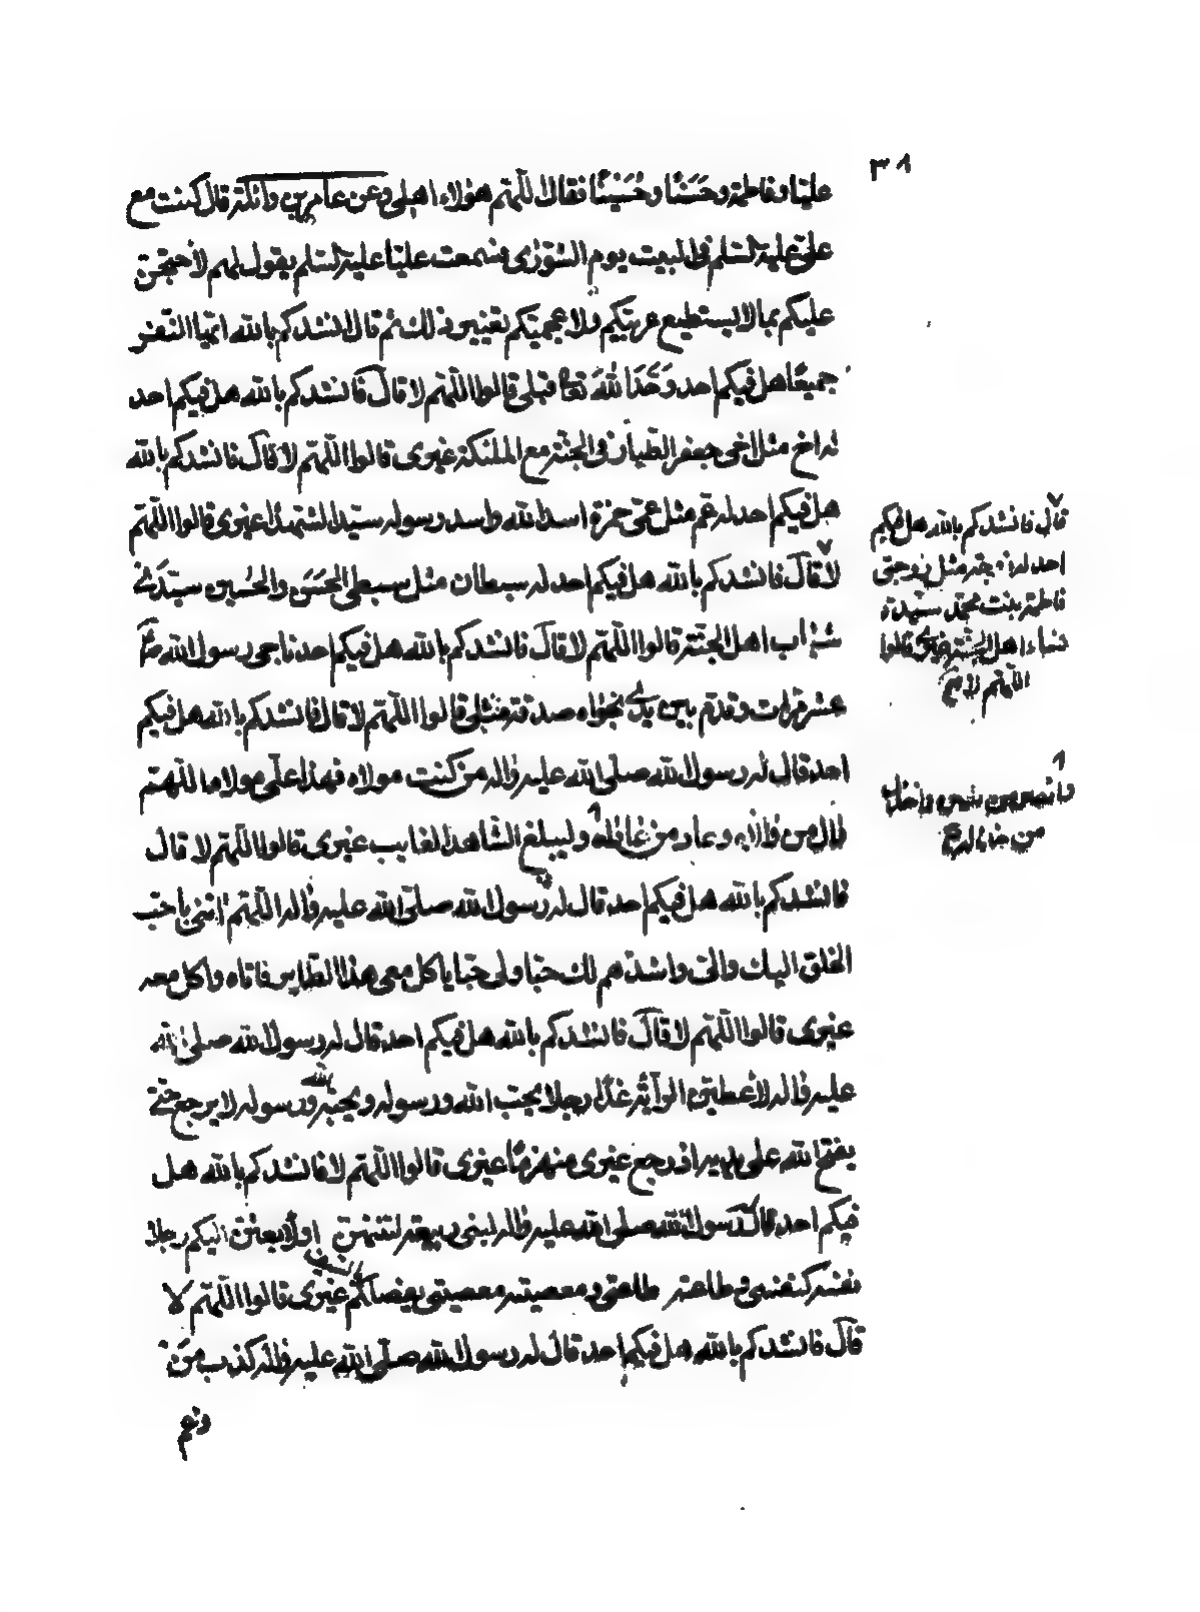 ٣٨
عليّا وفاطمة وحَسَنًا وحُسَيْنًا فقال اللّهمّ هؤلاء اهلى وعن عامر بن واثلة قال كنت مع
علىّ عليه السّلم فى البيت يوم الشورٰى فسمعت عليّا عليه السّلم يقول لهم لأحتجّن
عليكم بما لا يستطيع عربيّكم ولا عجميّكم تغيير ذلك ثم قال انشدكم بالله ايّها النّفر
جميعًا هل فيكم احد وَحَّدَ اللهَ قبلى قالوا اللّهمّ لا قال فانشدكم بالله هل فيكم احد
له اخ مثل اخى جعفر الطّيار فى الجنّة مع الملئكة غيرى قالوا اللّهمّ لا قال فانشدكم بالله
هل فيكم احد له عمّ مثل عمّى حمزة اسد الله واسد رسوله سيّد الشّهداء غيرى قالوا اللّهمّ
لا قال فانشدكم بالله هل فيكم احد له سبطان مثل سبطىّ الحَسَن والحُسين سيّدَىْ
شباب اهل الجنّة قالوا اللّهمّ لا قال فانشدكم بالله هل فيكم احد ناجى رسول الله
عشر مرّات وقدّم بين يدى نجواه صدقة مثلى قالوا اللّهمّ لا قال فانشدكم بالله هل فيكم
احد قال له رسول الله صلى الله عليه واله من كنت مولاه فهذا علىّ مولاه اللّهمّ
وال من والاه وعاد من عاداه وليبلغ الشّاهد الغايب غيرى قالوا اللّهمّ لا قال
فانشدكم بالله هل فيكم احد قال له رسول الله صلّى الله عليه واله اللّهمّ ائتنى باحبّ
الخلق اليك والىّ واشدّهم لك حبّا ولى حبّا ياكل معى هذا الطّاير فاتاه واكل معه
غيرى قالوا اللّهمّ لا قال فانشدكم بالله هل فيكم احد قال له رسول الله صلى الله
عليه واله لأعطينّ الرّاية غدًا رجلا يحبّ الله ورسوله ويحبّه الله ورسوله لا يرجع حتّى
يفتح الله على يديه اذ رجع غيرى منهزمًا غيرى قالوا اللّهمّ لا فانشدكم بالله هل
فيكم احد قال له رسول الله صلى الله عليه واله لبنى وليعة لتنتهنّ اولأبعثنّ اليكم رجلا
نفسه كنفسى وطاعته طاعتى ومعصيته معصيتى غيرى قالوا اللّهمّ لا
قال فانشدكم بالله هل فيكم احد قال له رسول الله صلّى الله عليه واله كذب من
زعم
قال فانشدكم بالله هل فيكم
احد له زوجة مثل زوجتى
فاطمة بنت محمّد سيّدة
نساء اهل الجنّة غيرى قالوا
اللّهمّ لا
وانصر من نصره واخذل
من خذله